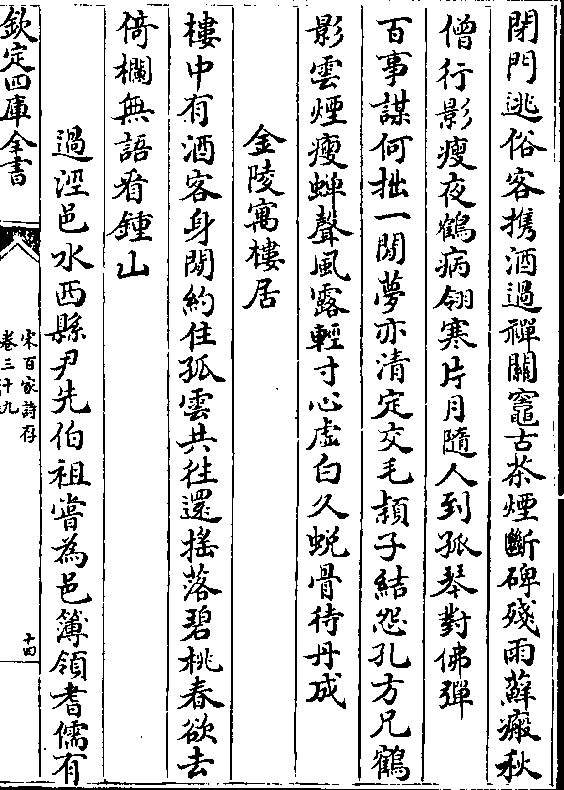 閉門逃俗客携酒過禪關竈古茶煙斷碑殘雨蘚瘢秋
僧行影瘦夜鶴病翎寒片月隨人到孤琴對佛彈
百事謀何拙一閒夢亦清定交毛頴子結怨孔方兄鶴
影雲煙瘦蟬聲風露輕寸心虛白久蛻骨待丹成
金陵寓樓居
樓中有酒客身閒約住孤雲共往還搖落碧桃春欲去
倚欄無語看鍾山
過涇邑水西縣尹先伯祖嘗為邑簿領耆儒有
欽定四庫全書
宋百家詩存
卷三十九
十四